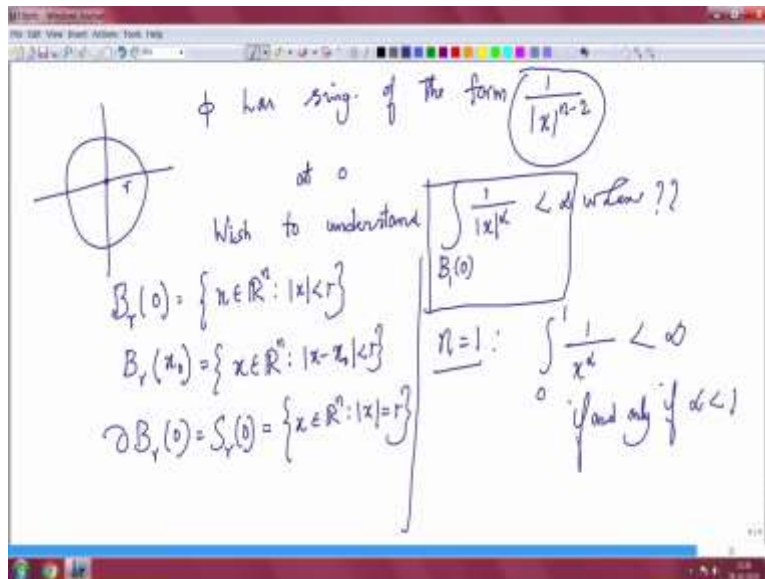 File Edit View Insert Actions Tools Help
ϕ has sing. of the form 1/|x|^{n-2}
at 0
r
Wish to understand ∫_{B_1(0)} 1/|x|^α < ∞ when ??
B_r(0) = {x ∈ ℝ^n : |x| < r}
B_r(x_0) = {x ∈ ℝ^n : |x - x_0| < r}
∂B_r(0) = S_r(0) = {x ∈ ℝ^n : |x| = r}
n = 1 : ∫_0^1 1/x^α < ∞
if and only if α < 1